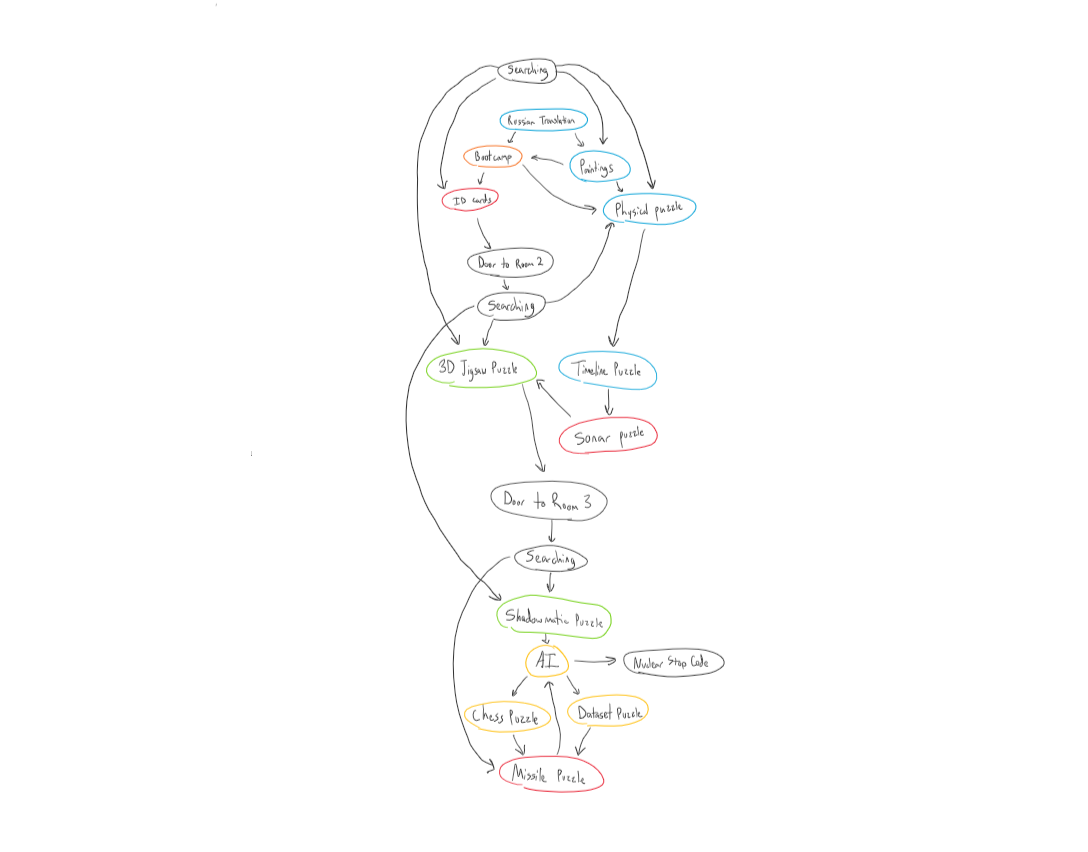 Searching
Russian Translation
Bootcamp
Paintings
ID cards
Physical puzzle
Door to Room 2
Searching
3D Jigsaw Puzzle
Timeline Puzzle
Sonar puzzle
Door to Room 3
Searching
Shadowmatic Puzzle
AI
Nuclear Stop Code
Chess Puzzle
Dataset Puzzle
Missile Puzzle